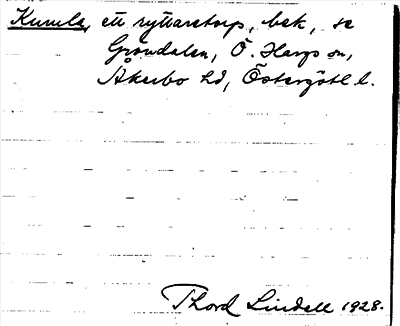 Kumla, ett ryttaretorp, bek, se
Gröndalen, Ö. Hargs sn,
Åkerbo hd, Östergötl l.
Thord Lindell 1928.